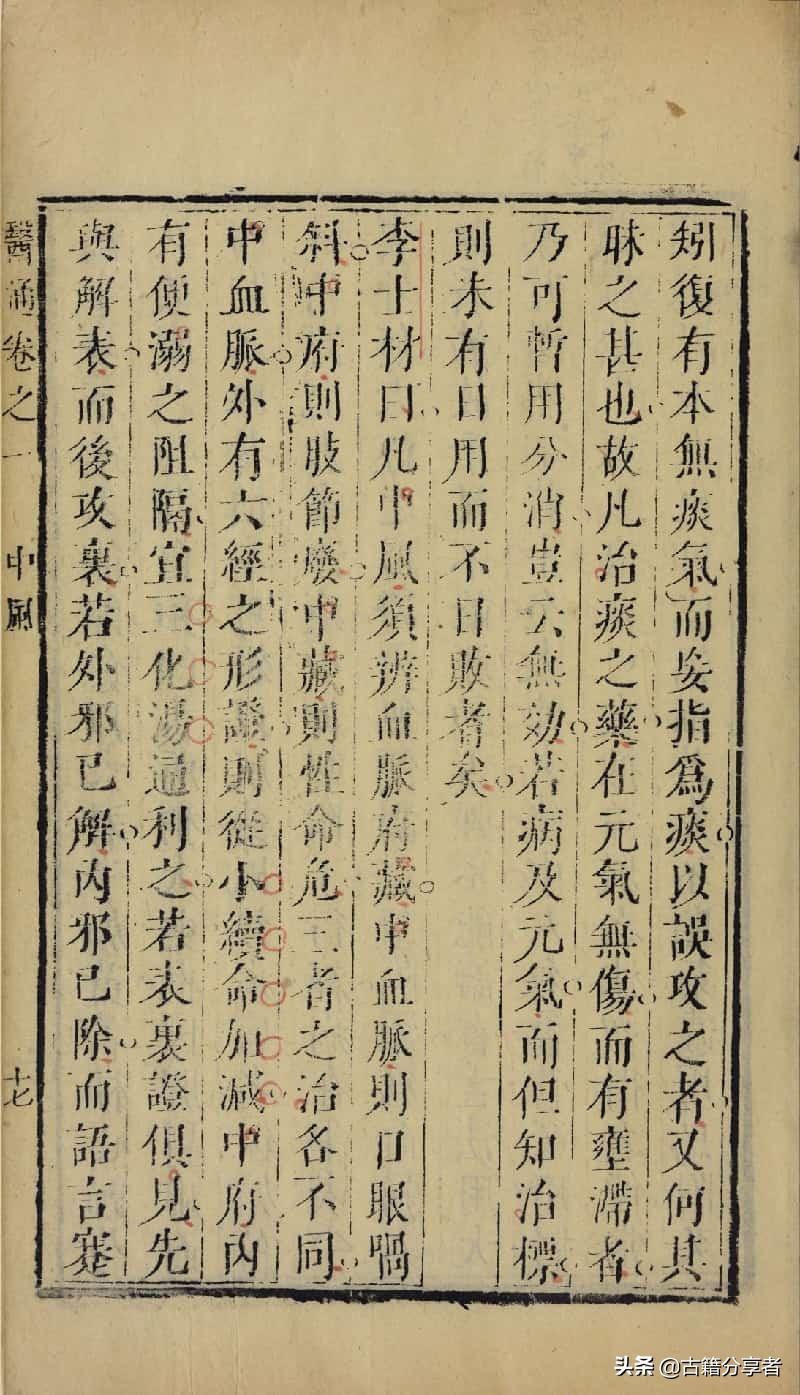 矧復有本無痰氣而妄指爲痰以誤攻之者又何其
昧之甚也故凡治痰之藥在元氣無傷而有壅滯者
乃可暫用分消豈云無効若病及元氣而但知治標
則未有日用而不日敗者矣
李士材曰凡中風須辨血脈府藏中血脈則口眼喎
斜中府則肢節廢中藏則性命危三者之治各不同
中血脈外有六經之形證則從小續命加減中府內
有便溺之阻隔宜三化湯通利之若表裏證俱見先
與解表而後攻裏若外邪已解內邪已除而語言蹇
醫通卷之一 中風 十七
头条 @古籍分享者